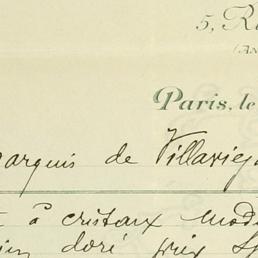 5, R
(AN
Paris, le
arquis de Villavieja
à cristaux mod
doré prix sp